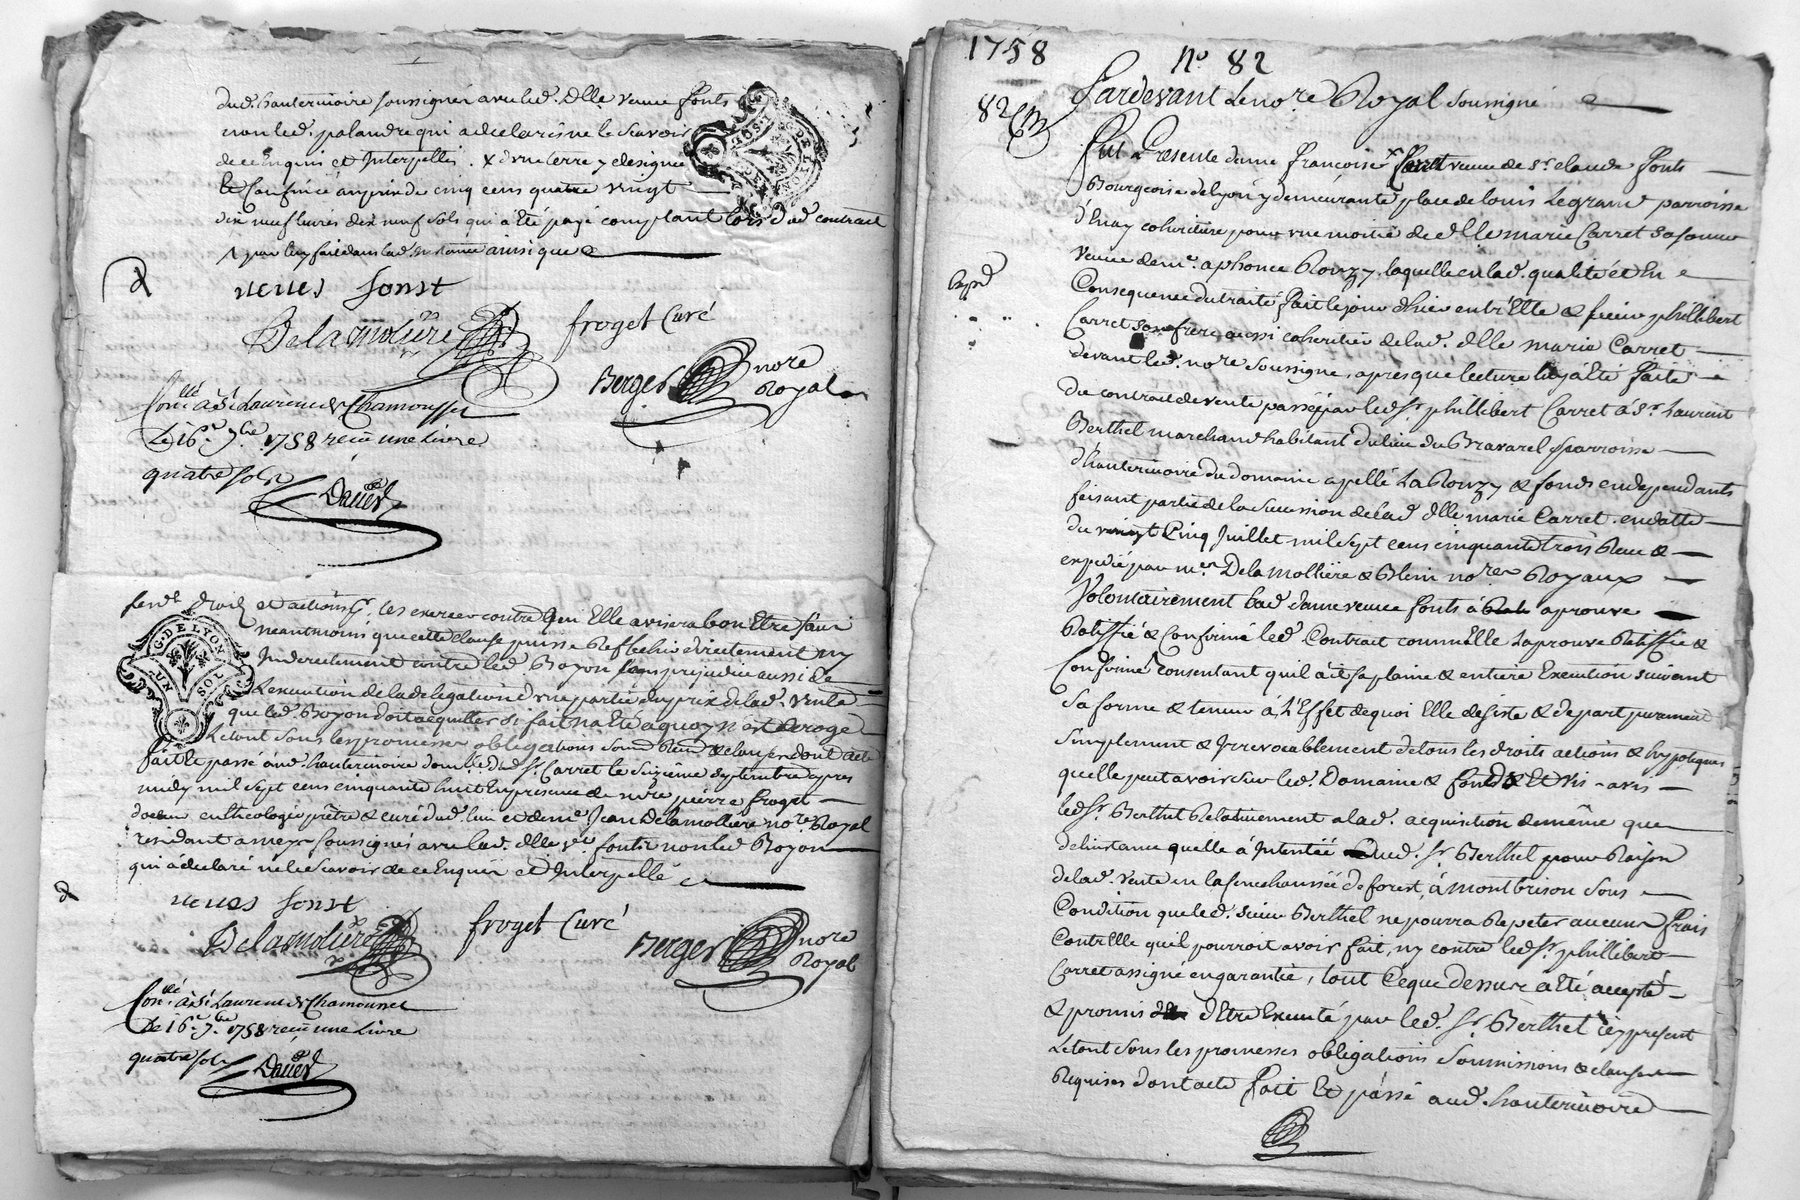 dud. hauterivoire soussignés avec lad. dlle veuve fonts
non led. palandre qui a declaré ne le scavoir
de ce Enquis et Interpellé. x d'une terre y designée
le Confiné au prix de cinq cens quatre vingt
dix neuf livres dix neuf sols qui a été payé comptant lors dud. contract
ainsi que
veuves fonst
Delamolière
froget Curé
Berger nore Royal
Conllé à St Laurend de Chamousset
Le 16e 7bre 1758 reçu une Livre
quatre sols
Daver
G. DE LYON
UN SOL
droits et actions pr. les exercer contre qui Elle avisera bon Etre sans
neantmoins que cette clause puisse Reflechir directement ny
Indirectement contre led. Royon sans prejudice aussi de
L'execution de la delegation d'une partie du prix de lad. vente
que led. Royon doit acquitter si fait n'a Eté a quoy n'est deroge
Le tout sous les promesses obligations soumissions & clauses dont acte
fait & passé aud. hauterivoire domicile dud. Sr. Carret le seizieme septembre apres
midy mil sept cens cinquante huit En presence de mre pierre froget
docteur en theologie prêtre & curé dud. lieu et de me Jean Delamollière nore Royal
residant a meys soussignés avec lad. dlle ve fonts non led Royon
qui a declaré ne le scavoir de ce Enquis et Interpellé
veuves fonst
Delamolière
froget Curé
Berger nore Royal
Conllé à St Laurend de Chamousset
Le 16e 7bre 1758 reçu une Livre
quatre sols
Daver
1758 No 82
82
Pardevant Le nore Royal soussigné
Fut Presente dame françoise Carret veuve de Sr. claude fonts
Bourgeoise de lyon y demeurante place de louis Le grand parroisse
d'Enay coheritiere pour une moitié de dlle marie Carret sa soeur
veuve de me. aphonce Rouzy. laquelle en lad. qualité et En
Consequence du traité fait le jour d'hier entr'Elle & sieur phillibert
Carret son frere aussi coheritier de lad. dlle marie Carret
devant led. nore soussigné, apres que lecture luy a été faite
du contrait de vente passé par led. Sr. phillibert Carret à Sr. Laurent
Berthel marchand habitant du lieu du Bravarel parroisse
d'hauterivoire du domaine apellé La Rouzy & fonds en dependants
faisant partie de la succession de lad. dlle marie Carret. en datte
du vingt Cinq Juillet mil sept cens cinquante trois Receu &
expedié par mes. Delamollière & Blein nores Royaux
Volontairement lad. dame veuve fonts à aprouvé
Ratiffié & Confirmé led. Contract comm'Elle L'aprouve Ratiffie &
Confirme consentant qu'il ait sa plaine & entiere Execution suivant
sa forme & teneur à L'Effet dequoi Elle desiste & depart purement
simplement & Irrevocablement de tous les droits actions & hypoteques
quelle peut avoir sur led. Domaine & fonds & Et vis-avis
led. Sr. Berthel Relativement a lad. acquisition de même que
de linstance quelle à Intentée aud. Sr. Berthel pour Raison
de lad. vente en la senechaussée de forest, à montbrison sous
Condition que led. sieur Berthel ne pourra Repeter aucuns frais
Contr'Elle qu'il pourroit avoir fait, ny contre led. Sr. phillibert
Carret assigné en garantie, tout Ceque dessus a été accepté
& promis d'Etre Executé par led. Sr. Berthel icy present
Le tout sous les promesses obligations soumissions & clauses
Requises dont acte fait Et passé aud. hauterivoire